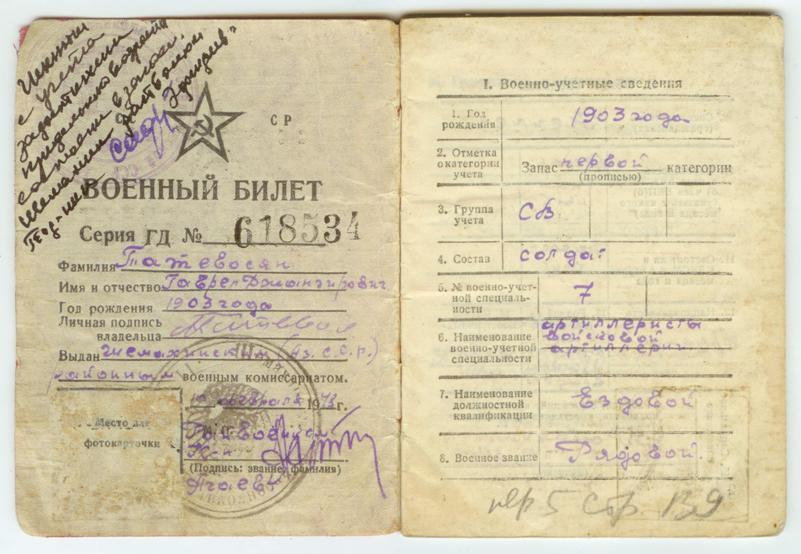 Исключен
с учета
за достижением
предельного возраста
состояния в запасе.
СР
ВОЕННЫЙ БИЛЕТ
Серия ГД № 618534
Фамилия Татевосян
Имя и отчество Гаврел Джангирович
Год рождения 1903 года
Личная подпись
владельца
Выдан Шемахинским (Аз. С.С.Р.)
районным военным комиссариатом.
10 февраля 1948 г.
Место для
фотокарточки
Райвоенком
(Подпись: звание, фамилия)
Агаев
I. Военно-учетные сведения
1. Год
рождения 1903 года
2. Отметка
о категории
учета Запас первой категории
(прописью)
3. Группа
учета СВ
4. Состав солдат
5. № военно-учет-
ной специаль-
ности 7
6. Наименование
военно-учетной
специальности артиллеристы
войсковой
артиллерии
7. Наименование
должностной
квалификации Ездовой
8. Военное звание Рядовой.
пер 5 стр 139